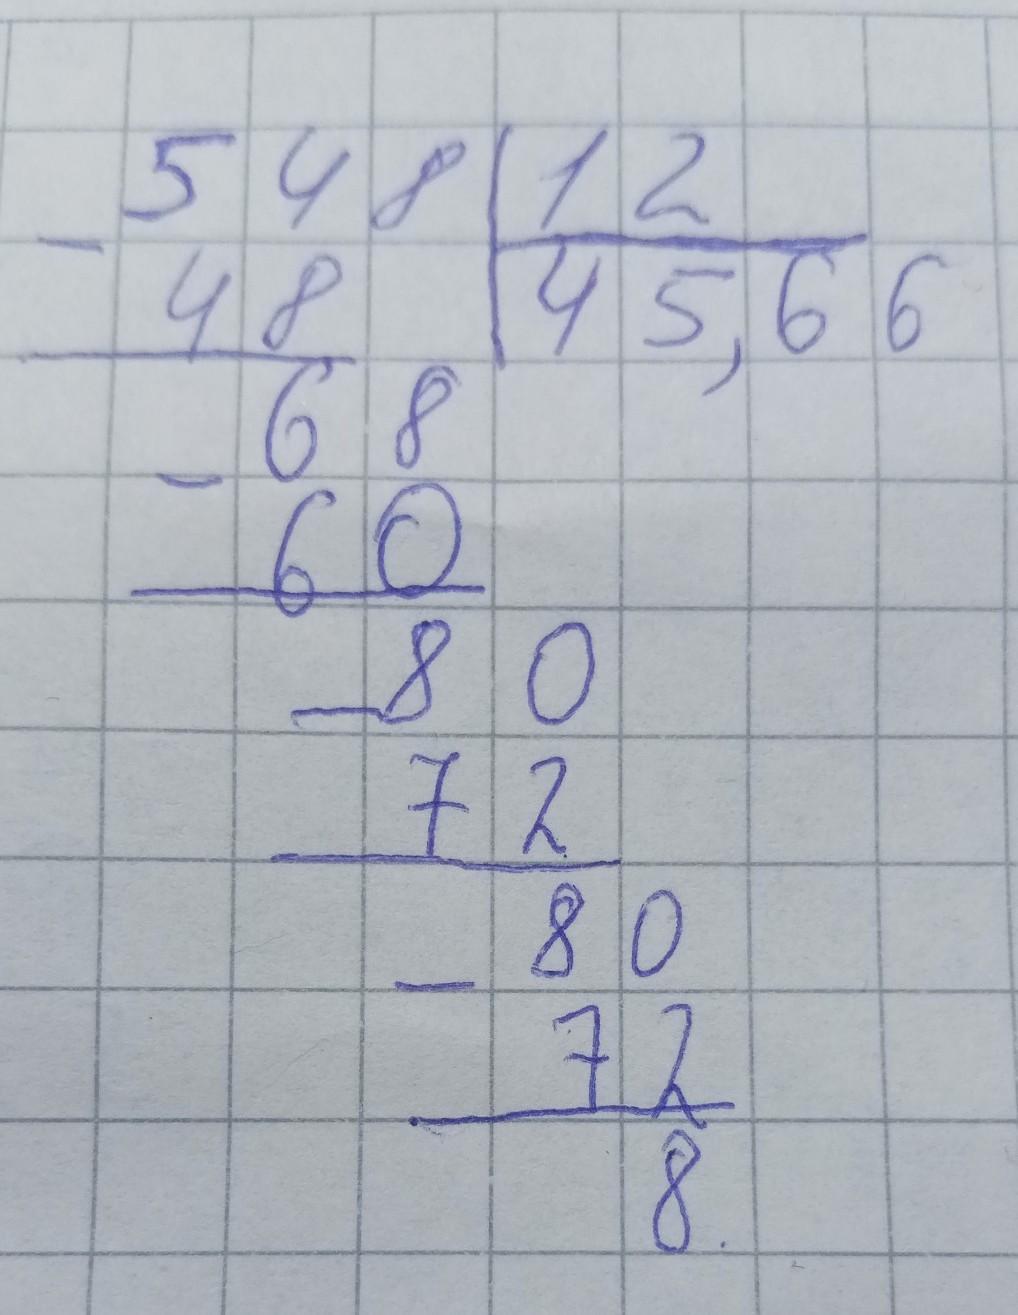 548 | 12
- 48 | 45,66
68
- 60
- 80
72
80
- 72
8.